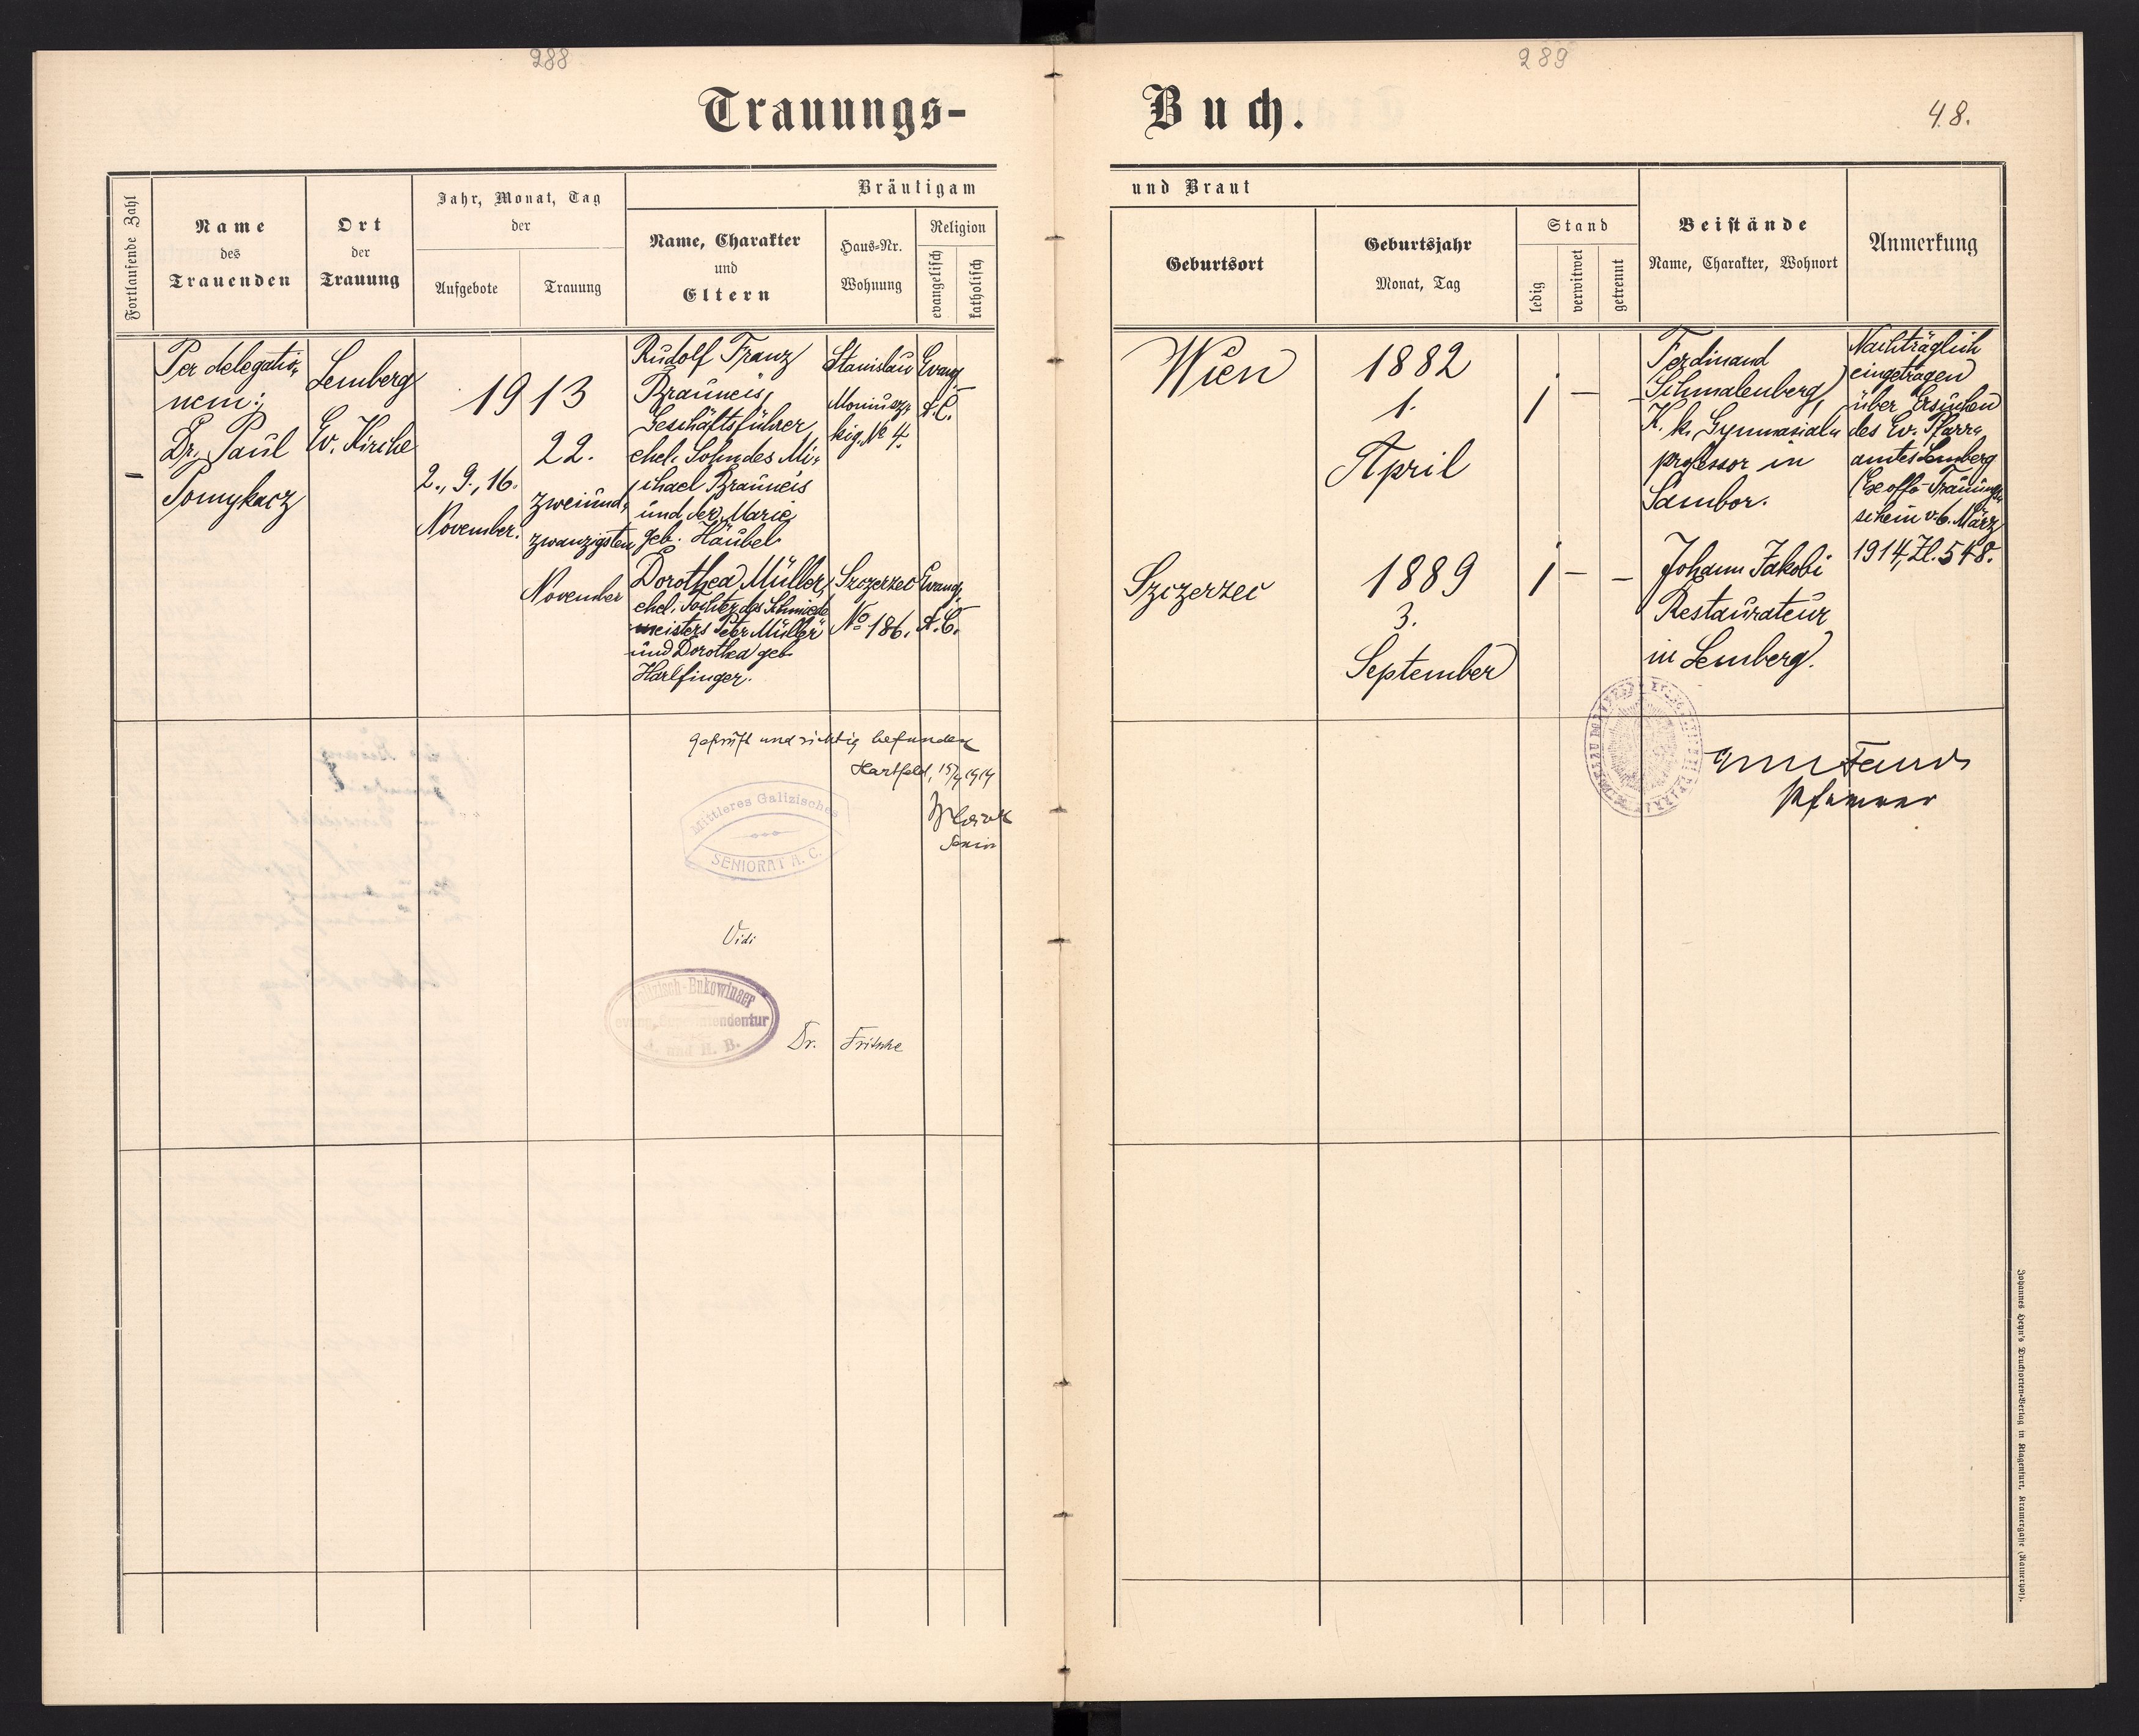 288
289
Trauungs-
Buch.
48.
Fortlaufende Zahl
Name
des
Trauenden
Ort
der
Trauung
Jahr, Monat, Tag
der
Aufgebote
Trauung
Bräutigam
Name, Charakter
und
Eltern
Haus-Nr.
Wohnung
Religion
evangelisch
katholisch
und Braut
Geburtsort
Geburtsjahr
Monat, Tag
Stand
ledig
verwitwet
getrennt
Beistände
Name, Charakter, Wohnort
Anmerkung
–
Per delegatio-
nem:
Dr. Paul
Tomykacz
Lemberg
Ev. Kirche
1913
2., 9., 16.
November.
22.
zweiund-
zwanzigsten
November
Rudolf Franz
Brauneis,
Geschäftsführer
ehel. Sohn des Mi-
chael Brauneis
und der Marie
geb. Häubel
Stanislau
kig. No 4.
Evang.
A. C.
Wien
1882
1.
April
Ferdinand
Schmalenberg,
K. k. Gymnasial-
professor in
Sambor.
Nachträglich
eingetragen
über Ersuchen
des Ev. Pfarr-
amtes Lemberg
schein v. 6. März
1914, Zl. 548.
Dorothea Müller,
ehel. Tochter des Schmiede
meisters Peter Müller
und Dorothea geb.
Harlfinger.
Szczerzec
No 186.
Evang.
A. C.
Szczerzec
1889
3.
September
Johann Jakobi
Restaurateur
in Lemberg.
geprüft und richtig befunden
Hartfeld, 15/4 1914
Senior
Mittleres Galizisches
SENIORAT A. C.
Pfarrer
Vidi
Galizisch-Bukowinaer
evang. Superintendentur
A. und H. B.
Dr. Fritsche
Johannes Heyn's Drucksorten-Verlag in Klagenfurt, Kramergasse (Rainerhof).